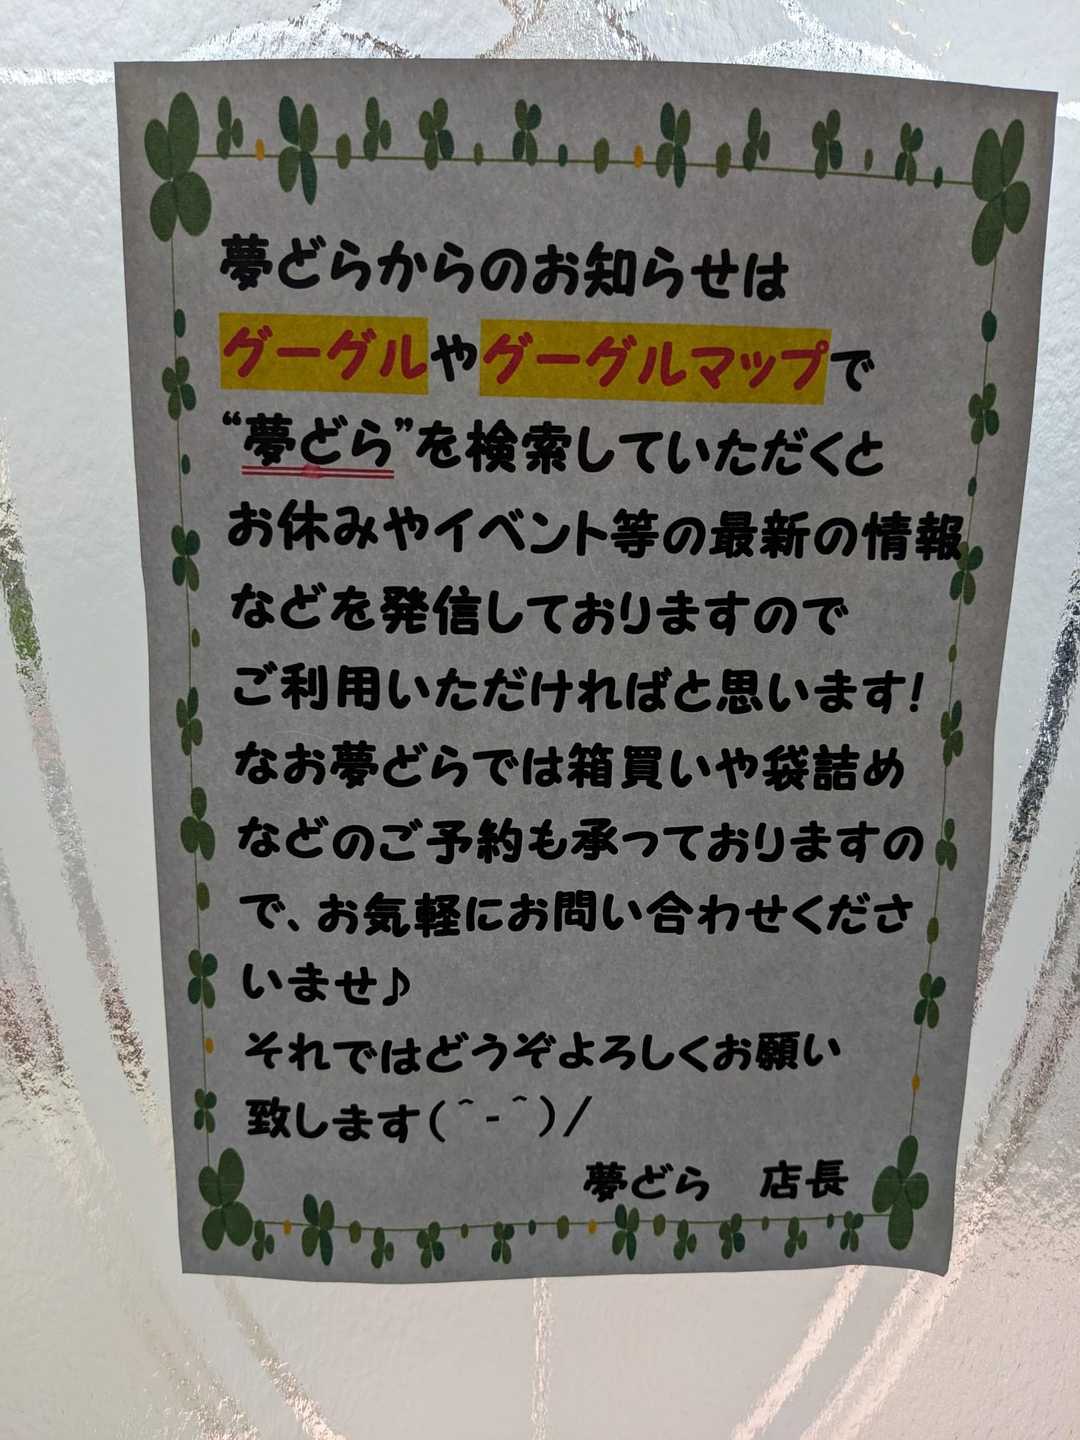 夢どらからのお知らせは
グーグルやグーグルマップで
“夢どら”を検索していただくと
お休みやイベント等の最新の情報
などを発信しておりますので
ご利用いただければと思います!
なお夢どらでは箱買いや袋詰め
などのご予約も承っておりますの
で、お気軽にお問い合わせくださ
いませ♪
それではどうぞよろしくお願い
致します(^-^)/
夢どら　店長